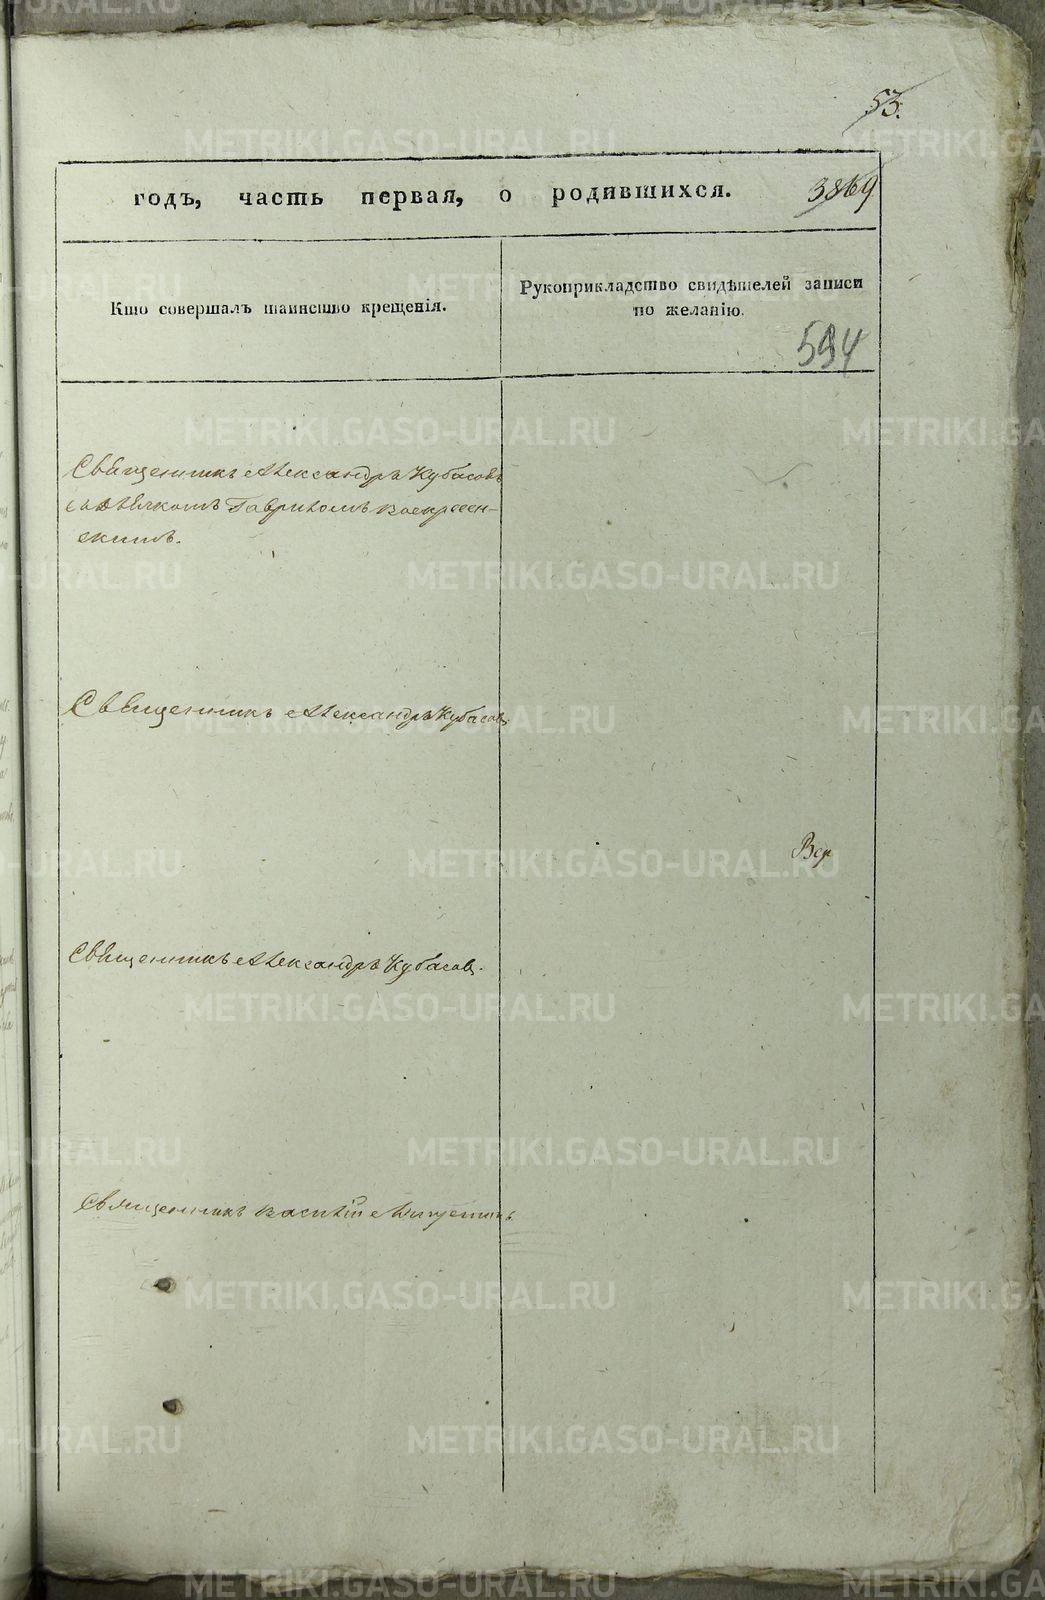 53.
годъ, часть первая, о родившихся.
3869
Кто совершалъ таинство крещенія.
Рукоприкладство свидѣтелей записи
по желанію.
594
Священникъ Александръ Кубасовъ
съ дьячкомъ Гавриломъ Воскресен-
скимъ.
Священникъ Александръ Кубасовъ
Вер
Священникъ Александръ Кубасовъ.
Священникъ Василій
METRIKI.GASO-URAL.RU